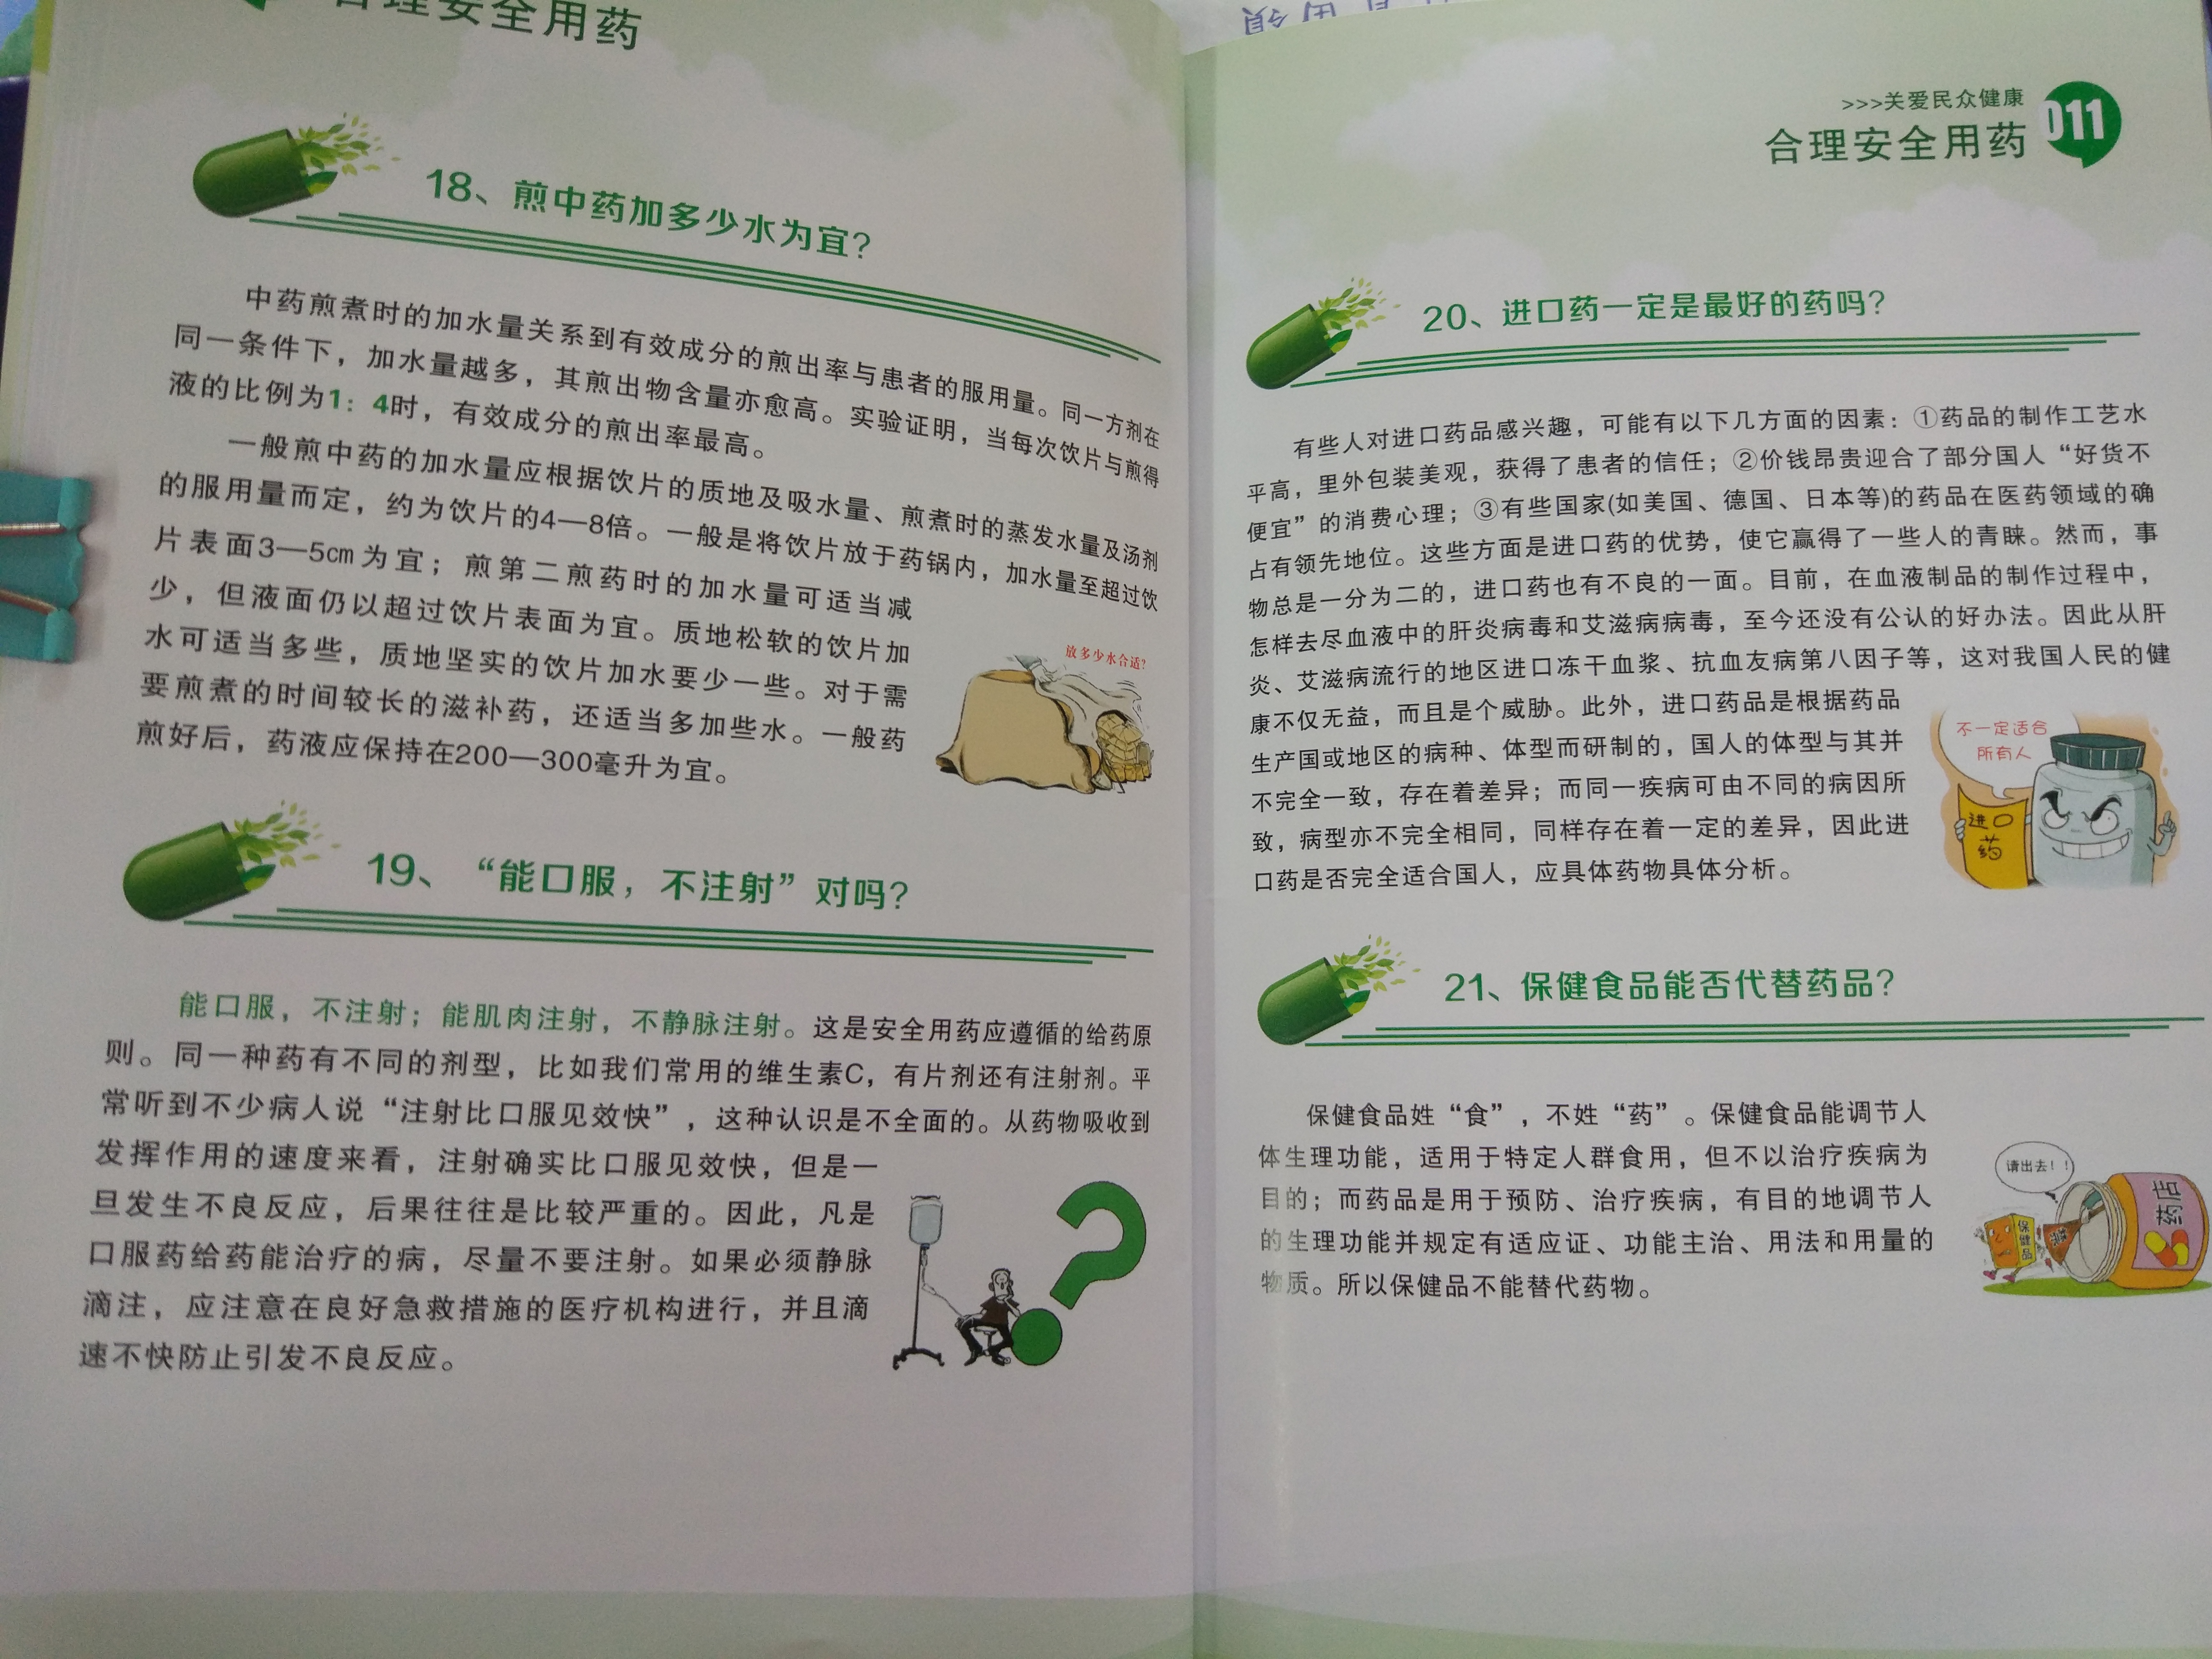 合理安全用药
18、煎中药加多少水为宜？
中药煎煮时的加水量关系到有效成分的煎出率与患者的服用量。同一方剂在
同一条件下，加水量越多，其煎出物含量亦愈高。实验证明，当每次饮片与煎得
液的比例为1：4时，有效成分的煎出率最高。
一般煎中药的加水量应根据饮片的质地及吸水量、煎煮时的蒸发水量及汤剂
的服用量而定，约为饮片的4—8倍。一般是将饮片放于药锅内，加水量至超过饮
片表面3—5cm为宜；煎第二煎药时的加水量可适当减
少，但液面仍以超过饮片表面为宜。质地松软的饮片加
水可适当多些，质地坚实的饮片加水要少一些。对于需
要煎煮的时间较长的滋补药，还适当多加些水。一般药
煎好后，药液应保持在200—300毫升为宜。
放多少水合适？
19、“能口服，不注射”对吗？
能口服，不注射；能肌肉注射，不静脉注射。这是安全用药应遵循的给药原
则。同一种药有不同的剂型，比如我们常用的维生素C，有片剂还有注射剂。平
常听到不少病人说“注射比口服见效快”，这种认识是不全面的。从药物吸收到
发挥作用的速度来看，注射确实比口服见效快，但是一
旦发生不良反应，后果往往是比较严重的。因此，凡是
口服药给药能治疗的病，尽量不要注射。如果必须静脉
滴注，应注意在良好急救措施的医疗机构进行，并且滴
速不快防止引发不良反应。
>>>关爱民众健康
合理安全用药
011
20、进口药一定是最好的药吗？
有些人对进口药品感兴趣，可能有以下几方面的因素：①药品的制作工艺水
平高，里外包装美观，获得了患者的信任；②价钱昂贵迎合了部分国人“好货不
便宜”的消费心理；③有些国家(如美国、德国、日本等)的药品在医药领域的确
占有领先地位。这些方面是进口药的优势，使它赢得了一些人的青睐。然而，事
物总是一分为二的，进口药也有不良的一面。目前，在血液制品的制作过程中，
怎样去尽血液中的肝炎病毒和艾滋病病毒，至今还没有公认的好办法。因此从肝
炎、艾滋病流行的地区进口冻干血浆、抗血友病第八因子等，这对我国人民的健
康不仅无益，而且是个威胁。此外，进口药品是根据药品
生产国或地区的病种、体型而研制的，国人的体型与其并
不完全一致，存在着差异；而同一疾病可由不同的病因所
致，病型亦不完全相同，同样存在着一定的差异，因此进
口药是否完全适合国人，应具体药物具体分析。
不一定适合
所有人
进口
药
21、保健食品能否代替药品？
保健食品姓“食”，不姓“药”。保健食品能调节人
体生理功能，适用于特定人群食用，但不以治疗疾病为
目的；而药品是用于预防、治疗疾病，有目的地调节人
的生理功能并规定有适应证、功能主治、用法和用量的
物质。所以保健品不能替代药物。
请出去！！
保健品
药店